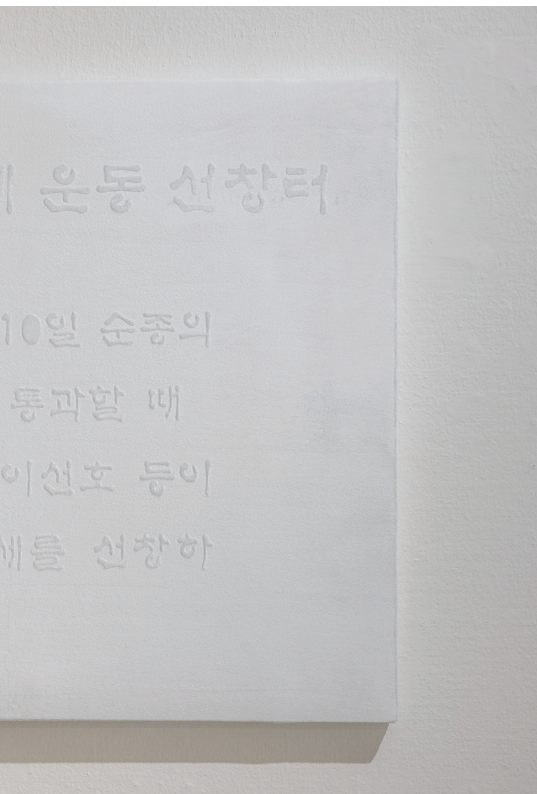 운동 선창터
10일 순종의
통과할 때
이선호 등이
세를 선창하